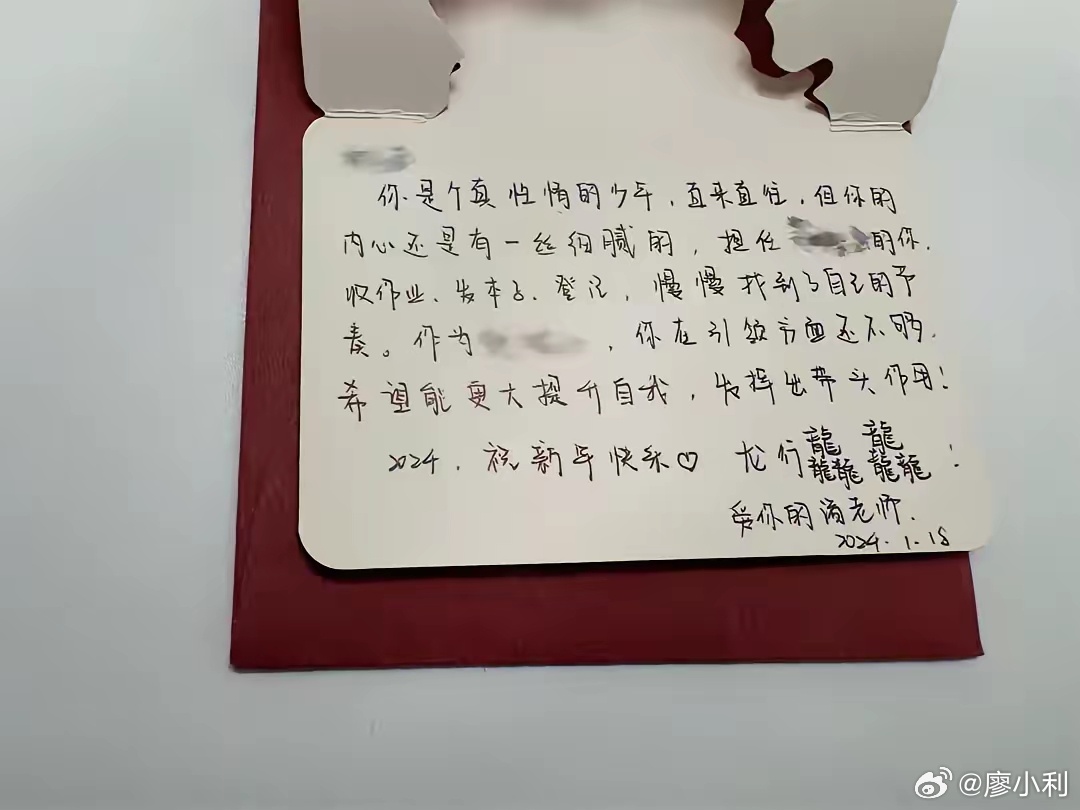 你是个真性情的少年,直来直往,但你的
内心还是有一丝细腻的,担任 的你,
收作业、发本子、登记,慢慢找到了自己的节
奏。作为 ,你在引领方面还不够,
希望能更大提升自我,发挥出带头作用!
2024,祝新年快乐♡ 龙行龘龘!
爱你的 老师.
2024.1.18
@廖小利